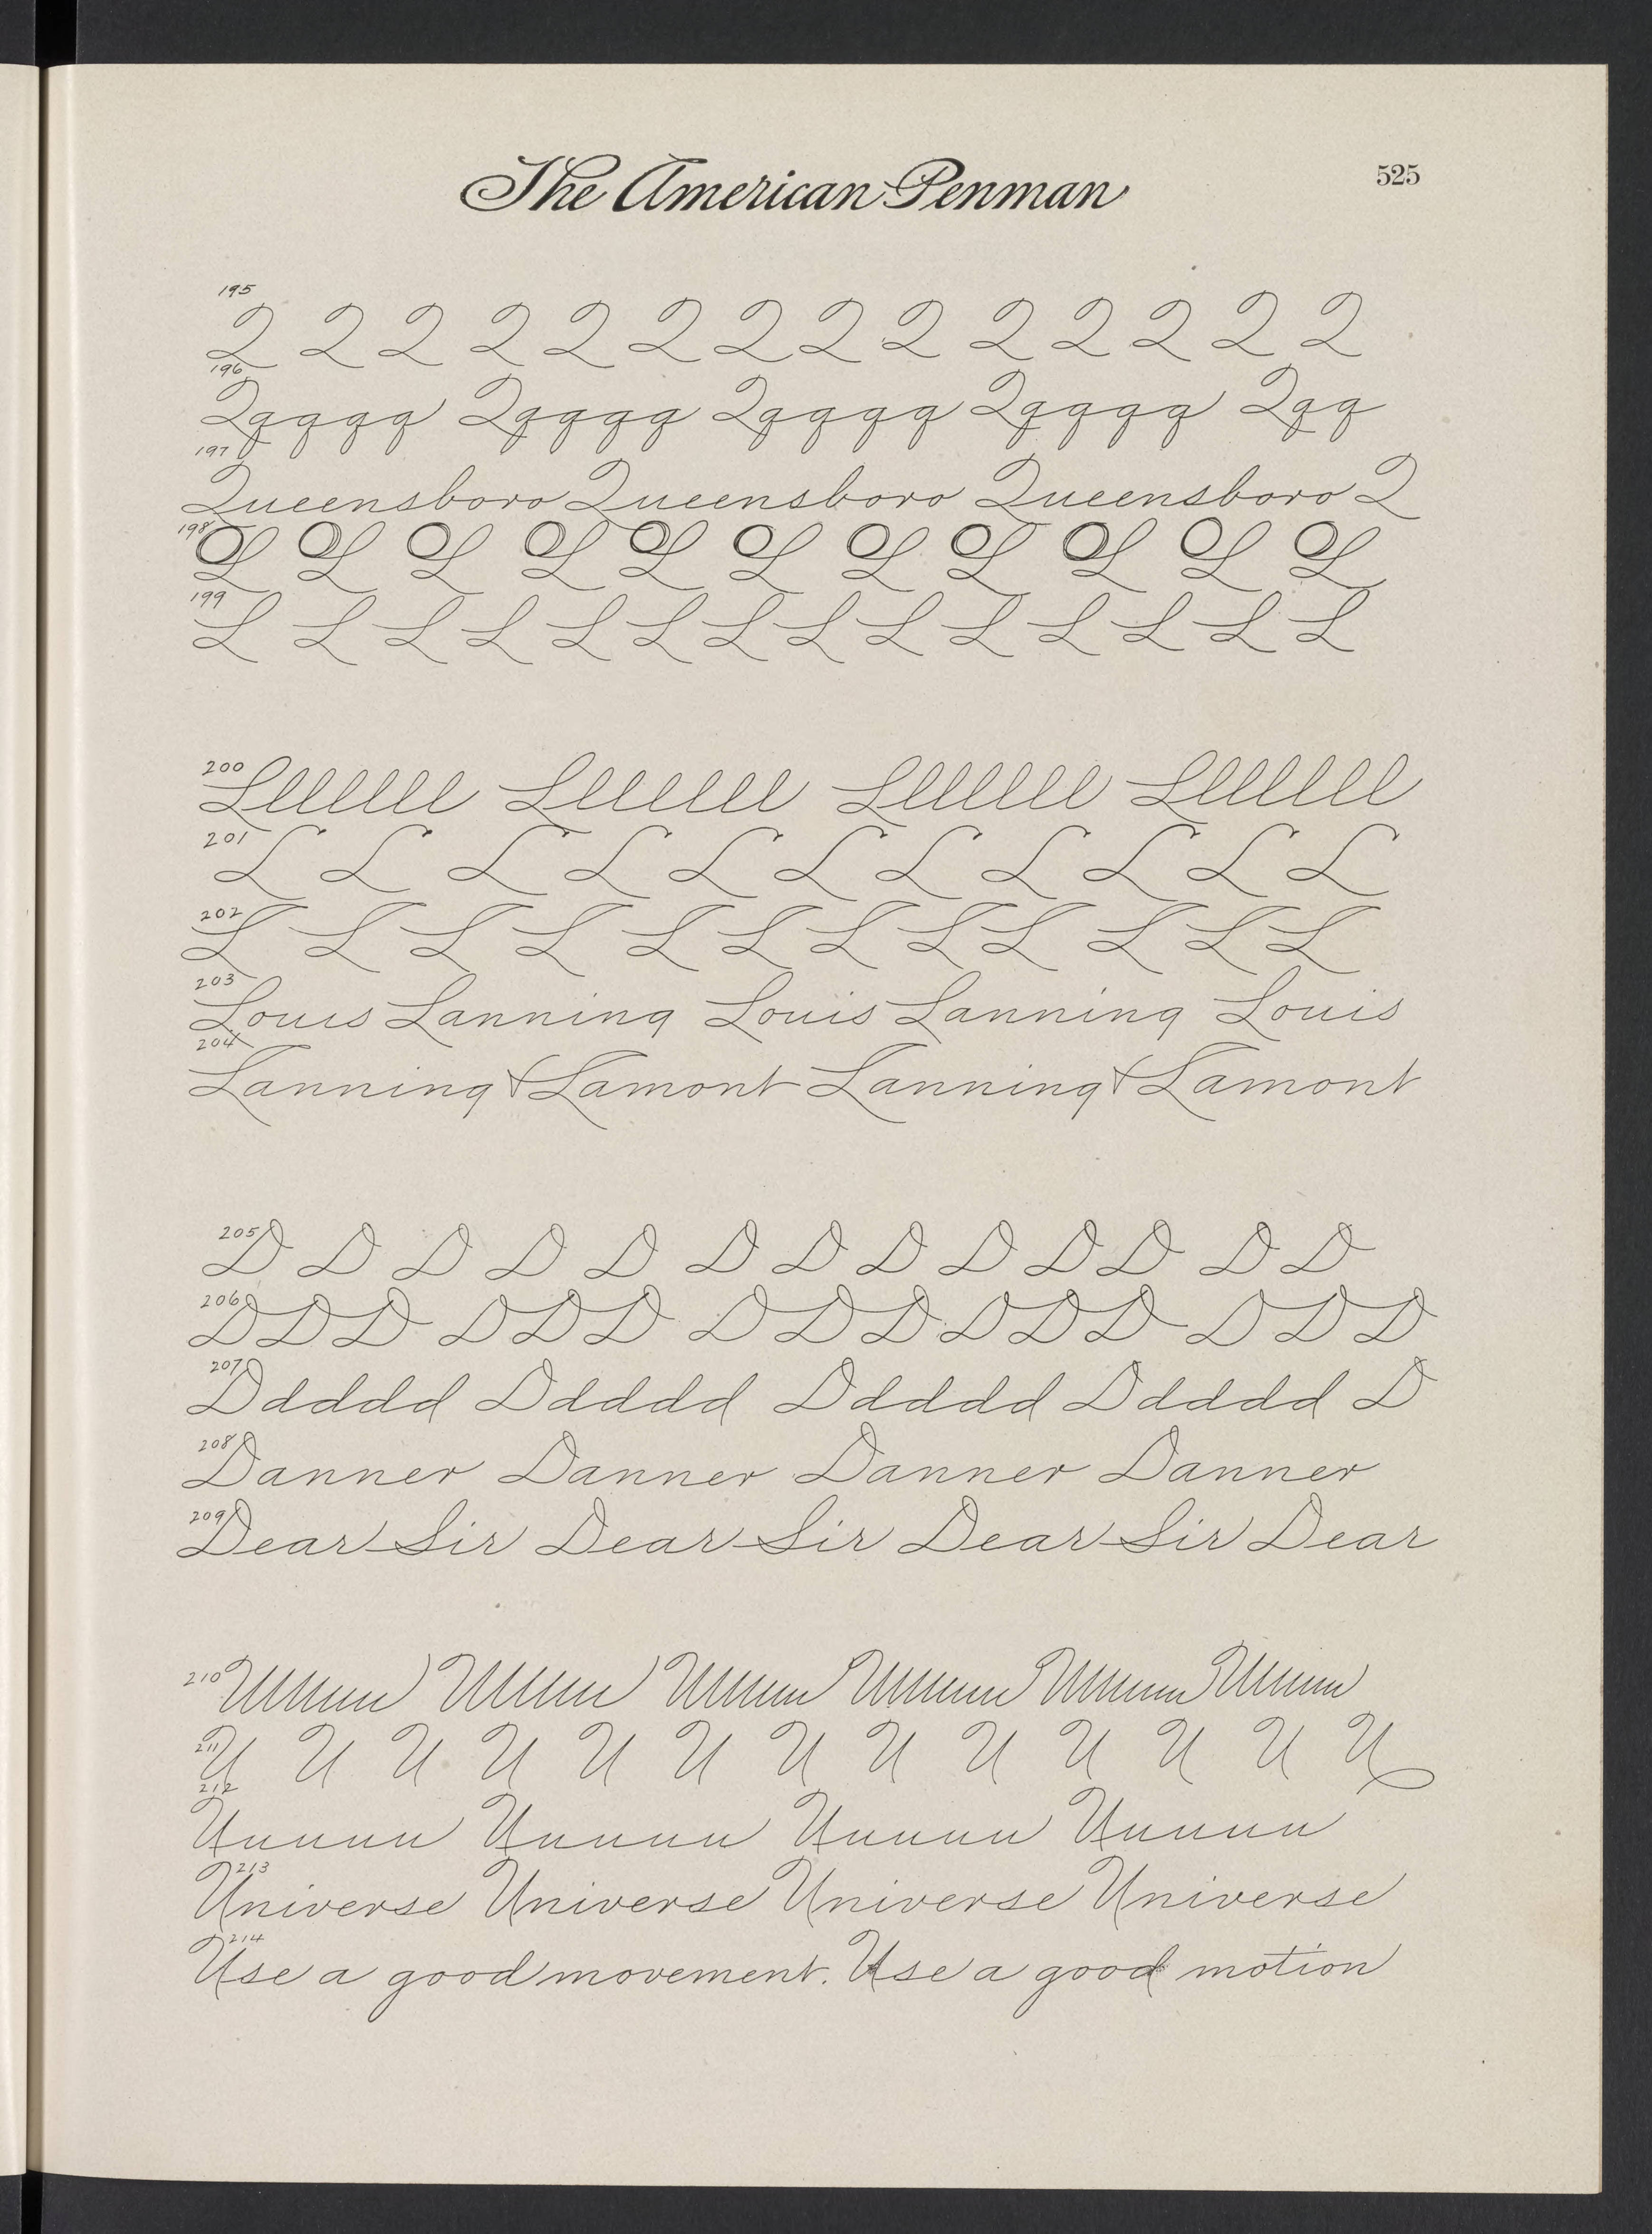 The American Penman
525
195
Q Q Q Q Q Q Q Q Q Q Q Q Q Q
196
Qqqqq Qqqqq Qqqqq Qqqqq Qqq
197
Queensboro Queensboro Queensboro Q
198
L L L L L L L L L L L
199
L L L L L L L L L L L L L L
200
Lllllll Lllllll Lllllll Lllllll
201
L L L L L L L L L L L
202
L L L L L L L L L L L L
203
Louis Lanning Louis Lanning Louis
204
Lanning & Lamont Lanning & Lamont
205
D D D D D D D D D D D D D
206
DDD DDD DDD DDD DDD
207
Ddddd Ddddd Ddddd Ddddd D
208
Danner Danner Danner Danner
209
Dear Sir Dear Sir Dear Sir Dear
210
211
U U U U U U U U U U U U U
212
Uuuuu Uuuuu Uuuuu Uuuuu
213
Universe Universe Universe Universe
214
Use a good movement. Use a good motion